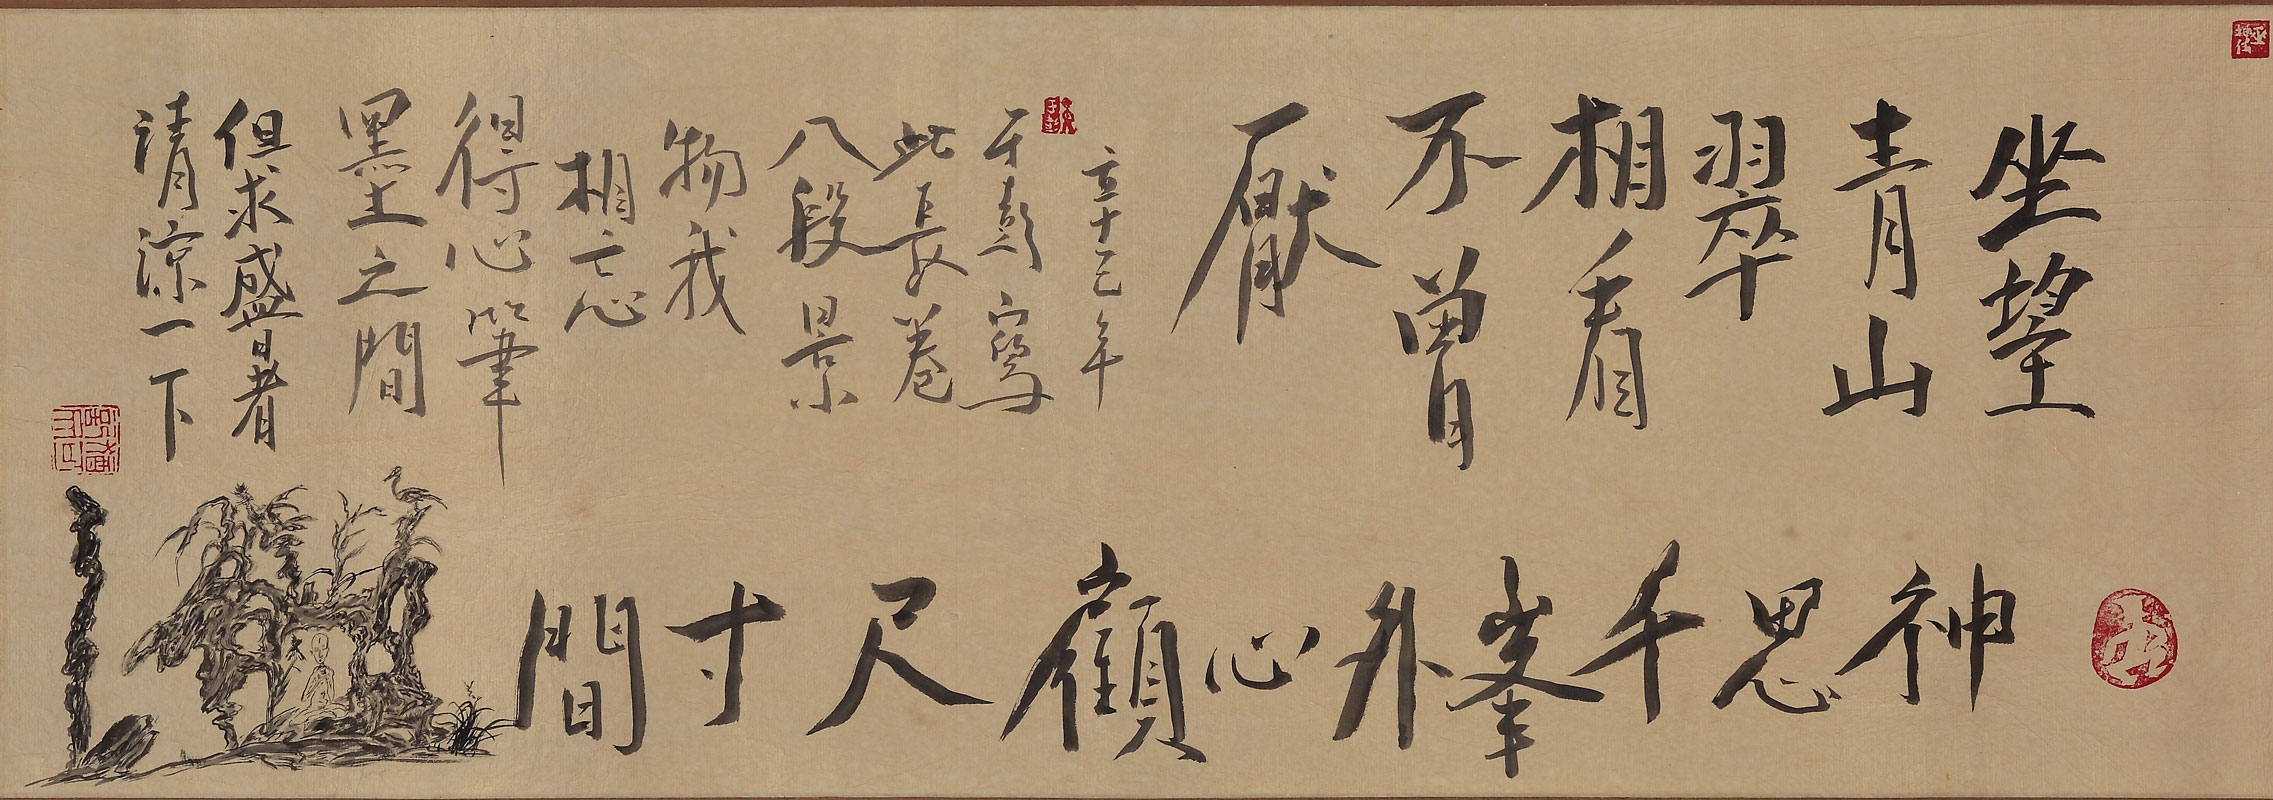 坐望
青山
翠
相看
不曾
厭
神思千峯外心顧尺寸間
辛巳年
于彭寫
此長卷
八段景
物我
相忘
得心筆
墨之間
但求盛暑
清涼一下